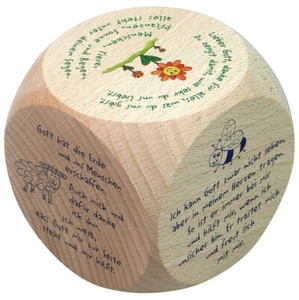 Lieber Gott, danke für alles, was du uns gibst.
Menschen, Tiere,
Pflanzen, Sonne und Regen,
alles steht unter deinem Segen.
Gott hat die Erde
und uns Menschen
erschaffen.
Auch mich und
dafür danke
ich ihm.
Ich weiß,
dass Gott mir zur Seite
steht und mir hilft.
Ich kann Gott zwar nicht sehen,
aber in meinem Herzen tragen.
So ist er immer bei mir
und hilft mir, wenn ich
unsicher bin. Er tröstet mich
und freut sich
mit mir.